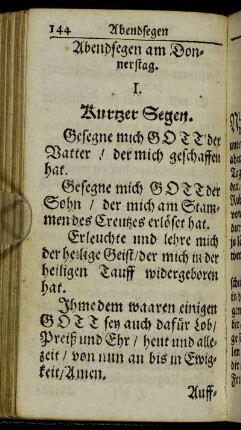 144 Abendsegen
Abendsegen am Don-
nerstag.
I.
Kurtzer Segen.
Gesegne mich GOTT der
Vatter / der mich geschaffen
hat.
Gesegne mich GOTT der
Sohn / der mich am Stam-
men des Creutzes erlöset hat.
Erleuchte und lehre mich
der heilige Geist / der mich in der
heiligen Tauff widergeboren
hat.
Ihme dem waaren einigen
GOTT sey auch dafür Lob /
Preiß und Ehr / heut und alle-
zeit / von nun an bis in Ewig-
keit / Amen.
Auff-